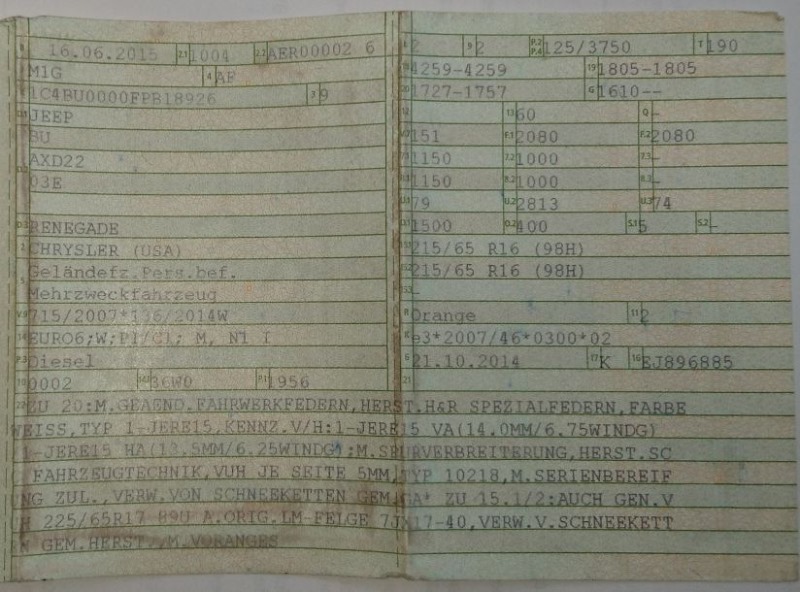 B 16.06.2015 2.1 1004 2.2 AER00002 6
J M1G 4 AF
E 1C4BU0000FPB18926 3 9
D.1 JEEP
BU
D.2 AXD22
03E
D.3 RENEGADE
2 CHRYSLER (USA)
5 Geländefz.Pers.bef.
Mehrzweckfahrzeug
V.9 715/2007*136/2014W
14 EURO6;W;PI/CI; M, N1 I
P.3 Diesel
10 0002 14.1 36W0 P.1 1956
L 2 9 2 P.2 P.4 125/3750 T 190
18 4259-4259 19 1805-1805
20 1727-1757 G 1610--
12 - 13 60 Q -
V.7 151 F.1 2080 F.2 2080
7.1 1150 7.2 1000 7.3 -
8.1 1150 8.2 1000 8.3 -
U.1 79 U.2 2813 U.3 74
O.1 1500 O.2 400 S.1 5 S.2 -
15.1 215/65 R16 (98H)
15.2 215/65 R16 (98H)
15.3 -
R Orange 11 2
K e3*2007/46*0300*02
6 21.10.2014 17 K 16 EJ896885
21
22 ZU 20:M.GEAEND.FAHRWERKFEDERN,HERST.H&R SPEZIALFEDERN,FARBE
WEISS,TYP 1-JERE15,KENNZ.V/H:1-JERE15 VA(14.0MM/6.75WINDG)
1-JERE15 HA(13.5MM/6.25WINDG);M.SPURVERBREITERUNG,HERST.SC
FAHRZEUGTECHNIK,VUH JE SEITE 5MM,TYP 10218,M.SERIENBEREIF
NG ZUL.,VERW.VON SCHNEEKETTEN GEM.GA* ZU 15.1/2:AUCH GEN.V
H 225/65R17 89U A.ORIG.LM-FELGE 7JX17-40,VERW.V.SCHNEEKETT
GEM.HERST./M.VORANGES